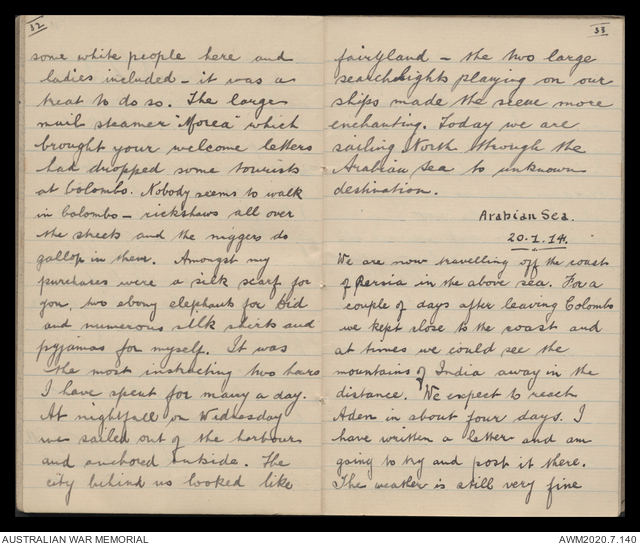 32
some white people here and
ladies included - it was a
treat to do so. The large
mail steamer "Morea" which
brought your welcome letters
had dropped some tourists
at Colombo. Nobody seems to walk
in Colombo - rickshaws all over
the streets and the niggers do
gallop in them. Amongst my
purchases were a silk scarf for
you, two ebony elephants for Did
and numerous silk shirts and
pyjamas for myself. It was
the most instructing two hours
I have spent for many a day.
At nightfall on Wednesday
we sailed out of the harbour
and anchored outside. The
city behind us looked like
33
fairyland - the two large
searchlights playing on our
ships made the scene more
enchanting. Today we are
sailing North through the
Arabian Sea to unknown
destination.
Arabian Sea.
20.1.14.
We are now travelling off the coast
of Persia in the above sea. For a
couple of days after leaving Colombo
we kept close to the coast and
at times we could see the
mountains of India away in the
distance. We expect to reach
Aden in about four days. I
have written a letter and am
going to try and post it there.
The weather is still very fine
AUSTRALIAN WAR MEMORIAL
AWM2020.7.140